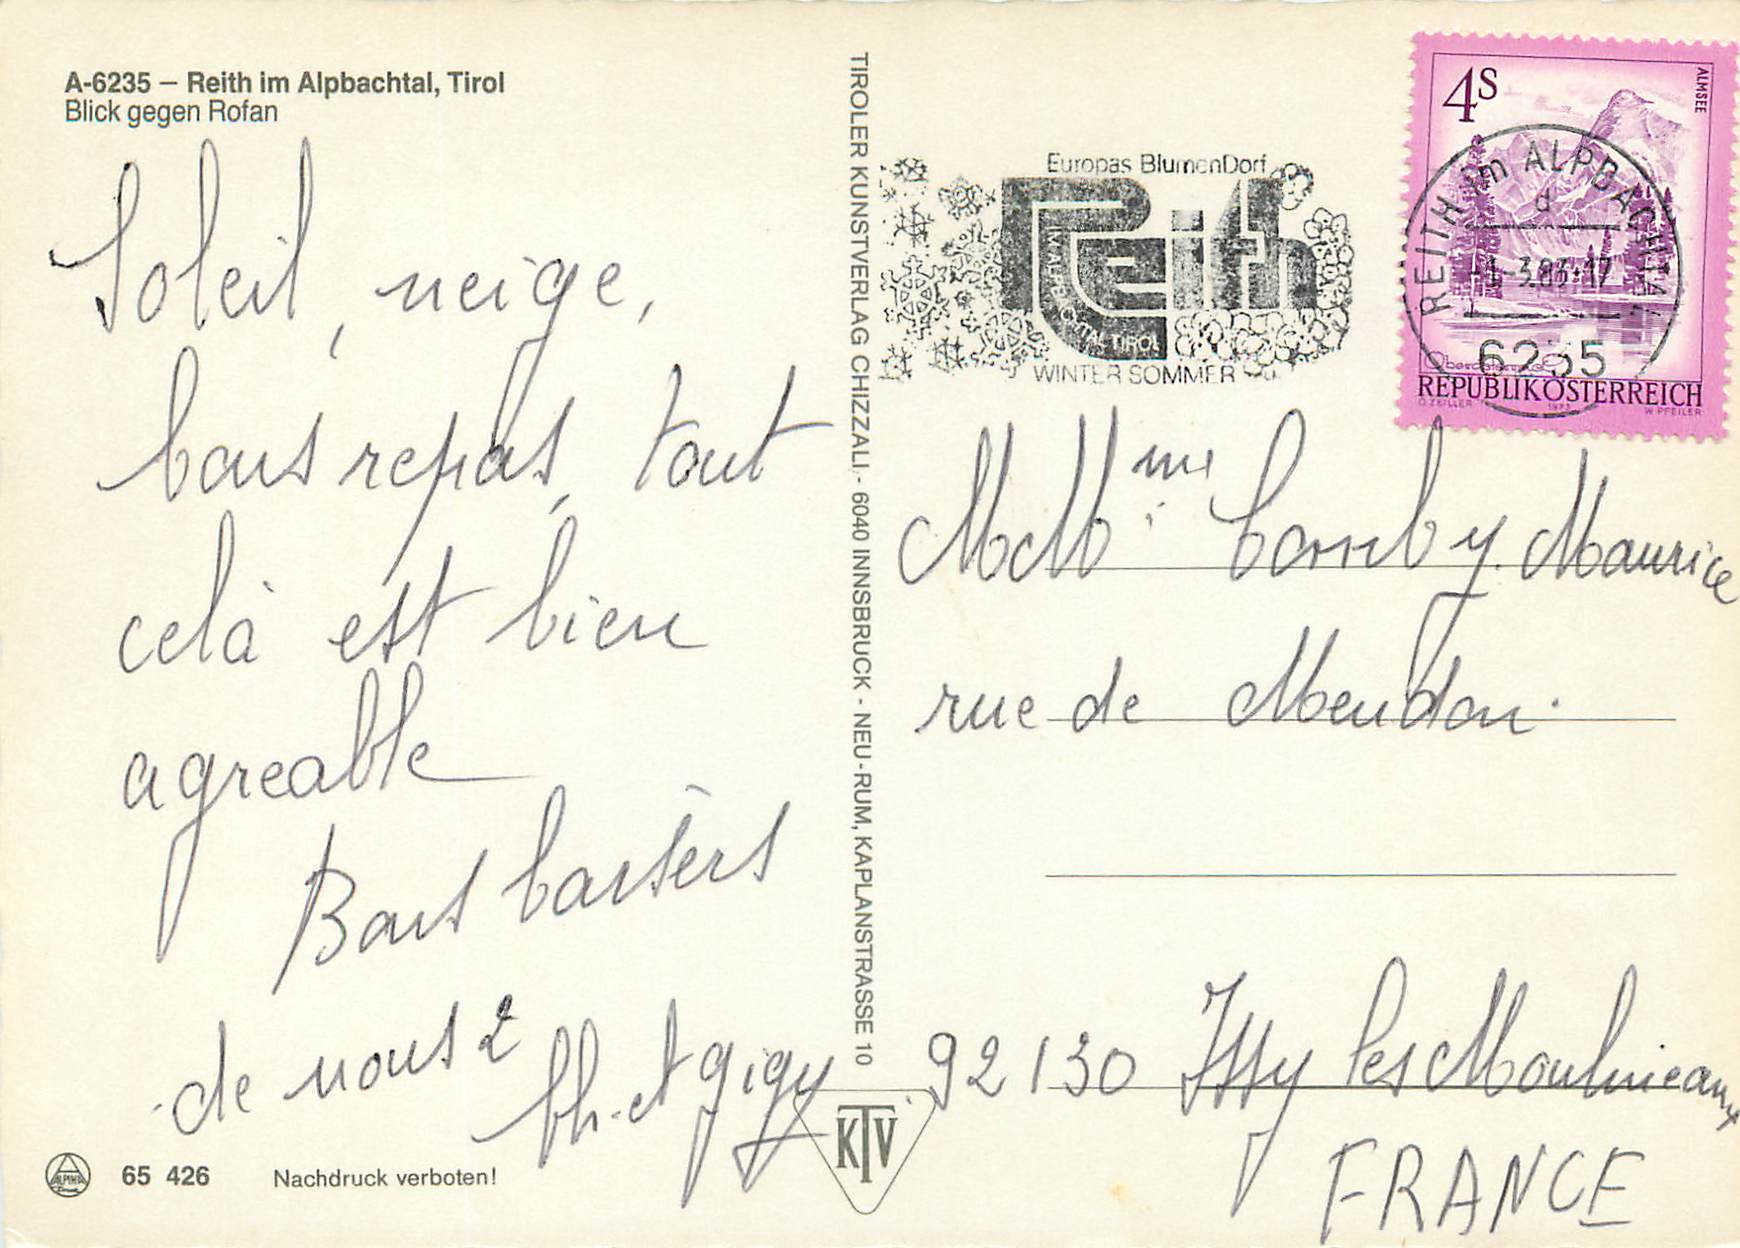 A-6235 – Reith im Alpbachtal, Tirol
Blick gegen Rofan
Soleil, neige,
bons repas, tout
celà est bien
agreable
Bons baisers
de nous 2
et gigy
65 426
Nachdruck verboten!
TIROLER KUNSTVERLAG CHIZZALI, - 6040 INNSBRUCK - NEU-RUM, KAPLANSTRASSE 10
KTV
Europas BlumenDorf
Reith
IM ALPBACHTAL TIROL
WINTER SOMMER
4S
ALMSEE
REITH im ALPBACHTAL
d
-1.-3.83-17
6235
REPUBLIK ÖSTERREICH
O. ZEILLER
1973
W. PFEILER
M et Mme Comby Maurice
rue de Meudon.
92130 Issy les Moulineaux
FRANCE